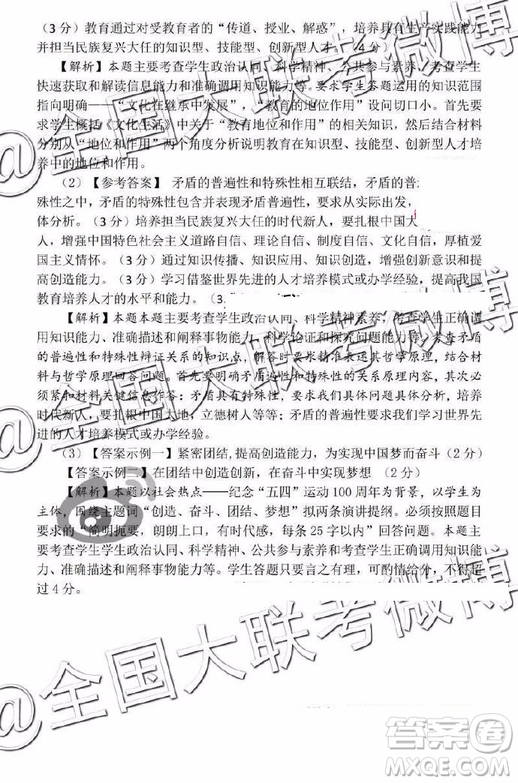 （3 分）教育通过对受教育者的“传道、授业、解惑”，培养具有生产实践能力
并担当民族复兴大任的知识型、技能型、创新型人才。（4 分）
【解析】本题主要考查学生政治认同、科学精神、公共参与素养。考查学生
快速获取和解读信息能力和准确调用知识的能力。要求学生答题运用的知识范围
指向明确——“文化在继承中发展”，“教育的地位和作用”设问切口小。首先要
求学生概括《文化生活》中关于“教育地位和作用”的相关知识，然后结合材料
分别从“地位和作用”两个角度分析说明教育在知识型、技能型、创新型人才培养
中的地位和作用。
（2）【参考答案】 矛盾的普遍性和特殊性相互联结，矛盾的普
殊性之中，矛盾的特殊性包含并表现矛盾的普遍性，要求从实际出发，
体分析。（3 分）培养担当民族复兴大任的时代新人，要扎根中国大
人，增强中国特色社会主义道路自信、理论自信、制度自信、文化自信，厚植爱
国主义情怀。（3 分）通过传播知识、运用知识、知识创造，增强创新意识和提
高创造能力。（3 分）学习借鉴世界先进的人才培养模式或办学经验，提高我国
教育培养人才的水平和能力。（3.
【解析】本题本题主要考查学生政治认同、科学精神素养；考查学生正确调
用知识能力、准确描述和阐释事物能力，科学论证和探究问题能力。要求考生以
的普遍性和特殊性辩证关系的知识点，解答以哲学原理要求答题，结合
料与哲学原理回答问题。首先要求学生明确矛盾的普遍性原理，结合材
料与材料和关键信息作答；矛盾的普遍性和特殊性的关系原理内容
培养时代新人，要扎根中国大地、立德树人等等；矛盾的普遍性要学习世界先进
进的人才培养模式或办学经验。
（3）【答案示例一】紧密团结,提高创造能力，为实现中国梦而奋斗（2 分）
【答案示例二】在团结中创造创新，在奋斗中实现梦想 （2 分）
【解析】本题以社会热点——纪念“五四”运动 100 周年为背景，以学生为
主体，围绕主题词“创造、奋斗、团结、梦想”拟两条演讲提纲。要求学生
度的“简明扼要，朗朗上口，有时代感，每条 25 字以内”回答问题。本题主
要考查学生学生政治认同、科学精神、公共参与素养和考查学生正确调用知识能
力、准确描述和阐释事物能力等。学生答题只要言之有理，可酌情给分，不得超
过 4 分。
@全国大联考微博
@全国大联考微博
@全国大联考微博
答案卷
MXQE.COM